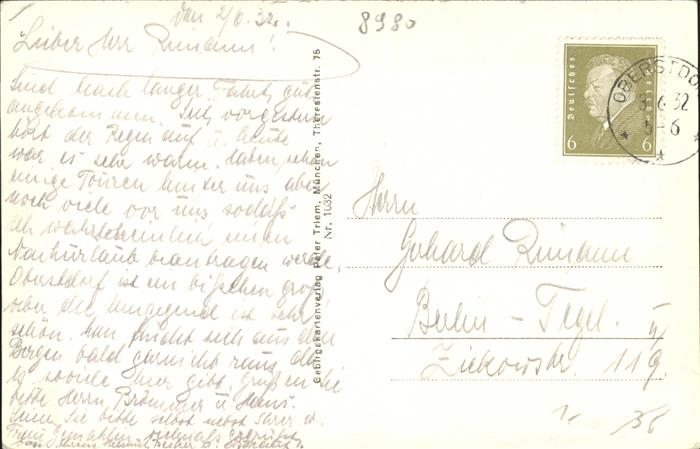 den 2/6.32.
8980
Lieber Herr Rimann!
Sind nach langer Fahrt gut
angekommen. Seit vorgestern
hört der Regen auf u. heute
war es sehr warm. Haben schon
einige Touren hinter uns aber
noch viele vor uns sodaß
ich wahrscheinlich einen
Nachurlaub beantragen werde.
Oberstdorf ist ein bißchen groß
aber die Umgegend ist sehr
schön. Man findet sich aus den
Bergen bald garnicht raus, da
es soviele hier gibt. Grüßen Sie
bitte Herrn Brommer u. Hans.
Sie bitte selbst nebst Ihrer w.
Frau Gemahlin
Gebirgskartenverlag Peter Triem, München, Theresienstr. 75
Nr. 1032
Deutsches Reich
6 6
OBERSTDORF
3.6.32
5-6
Herrn
Gerhard Rimann
Berlin-Tegel.
Ziekowstr. 119.